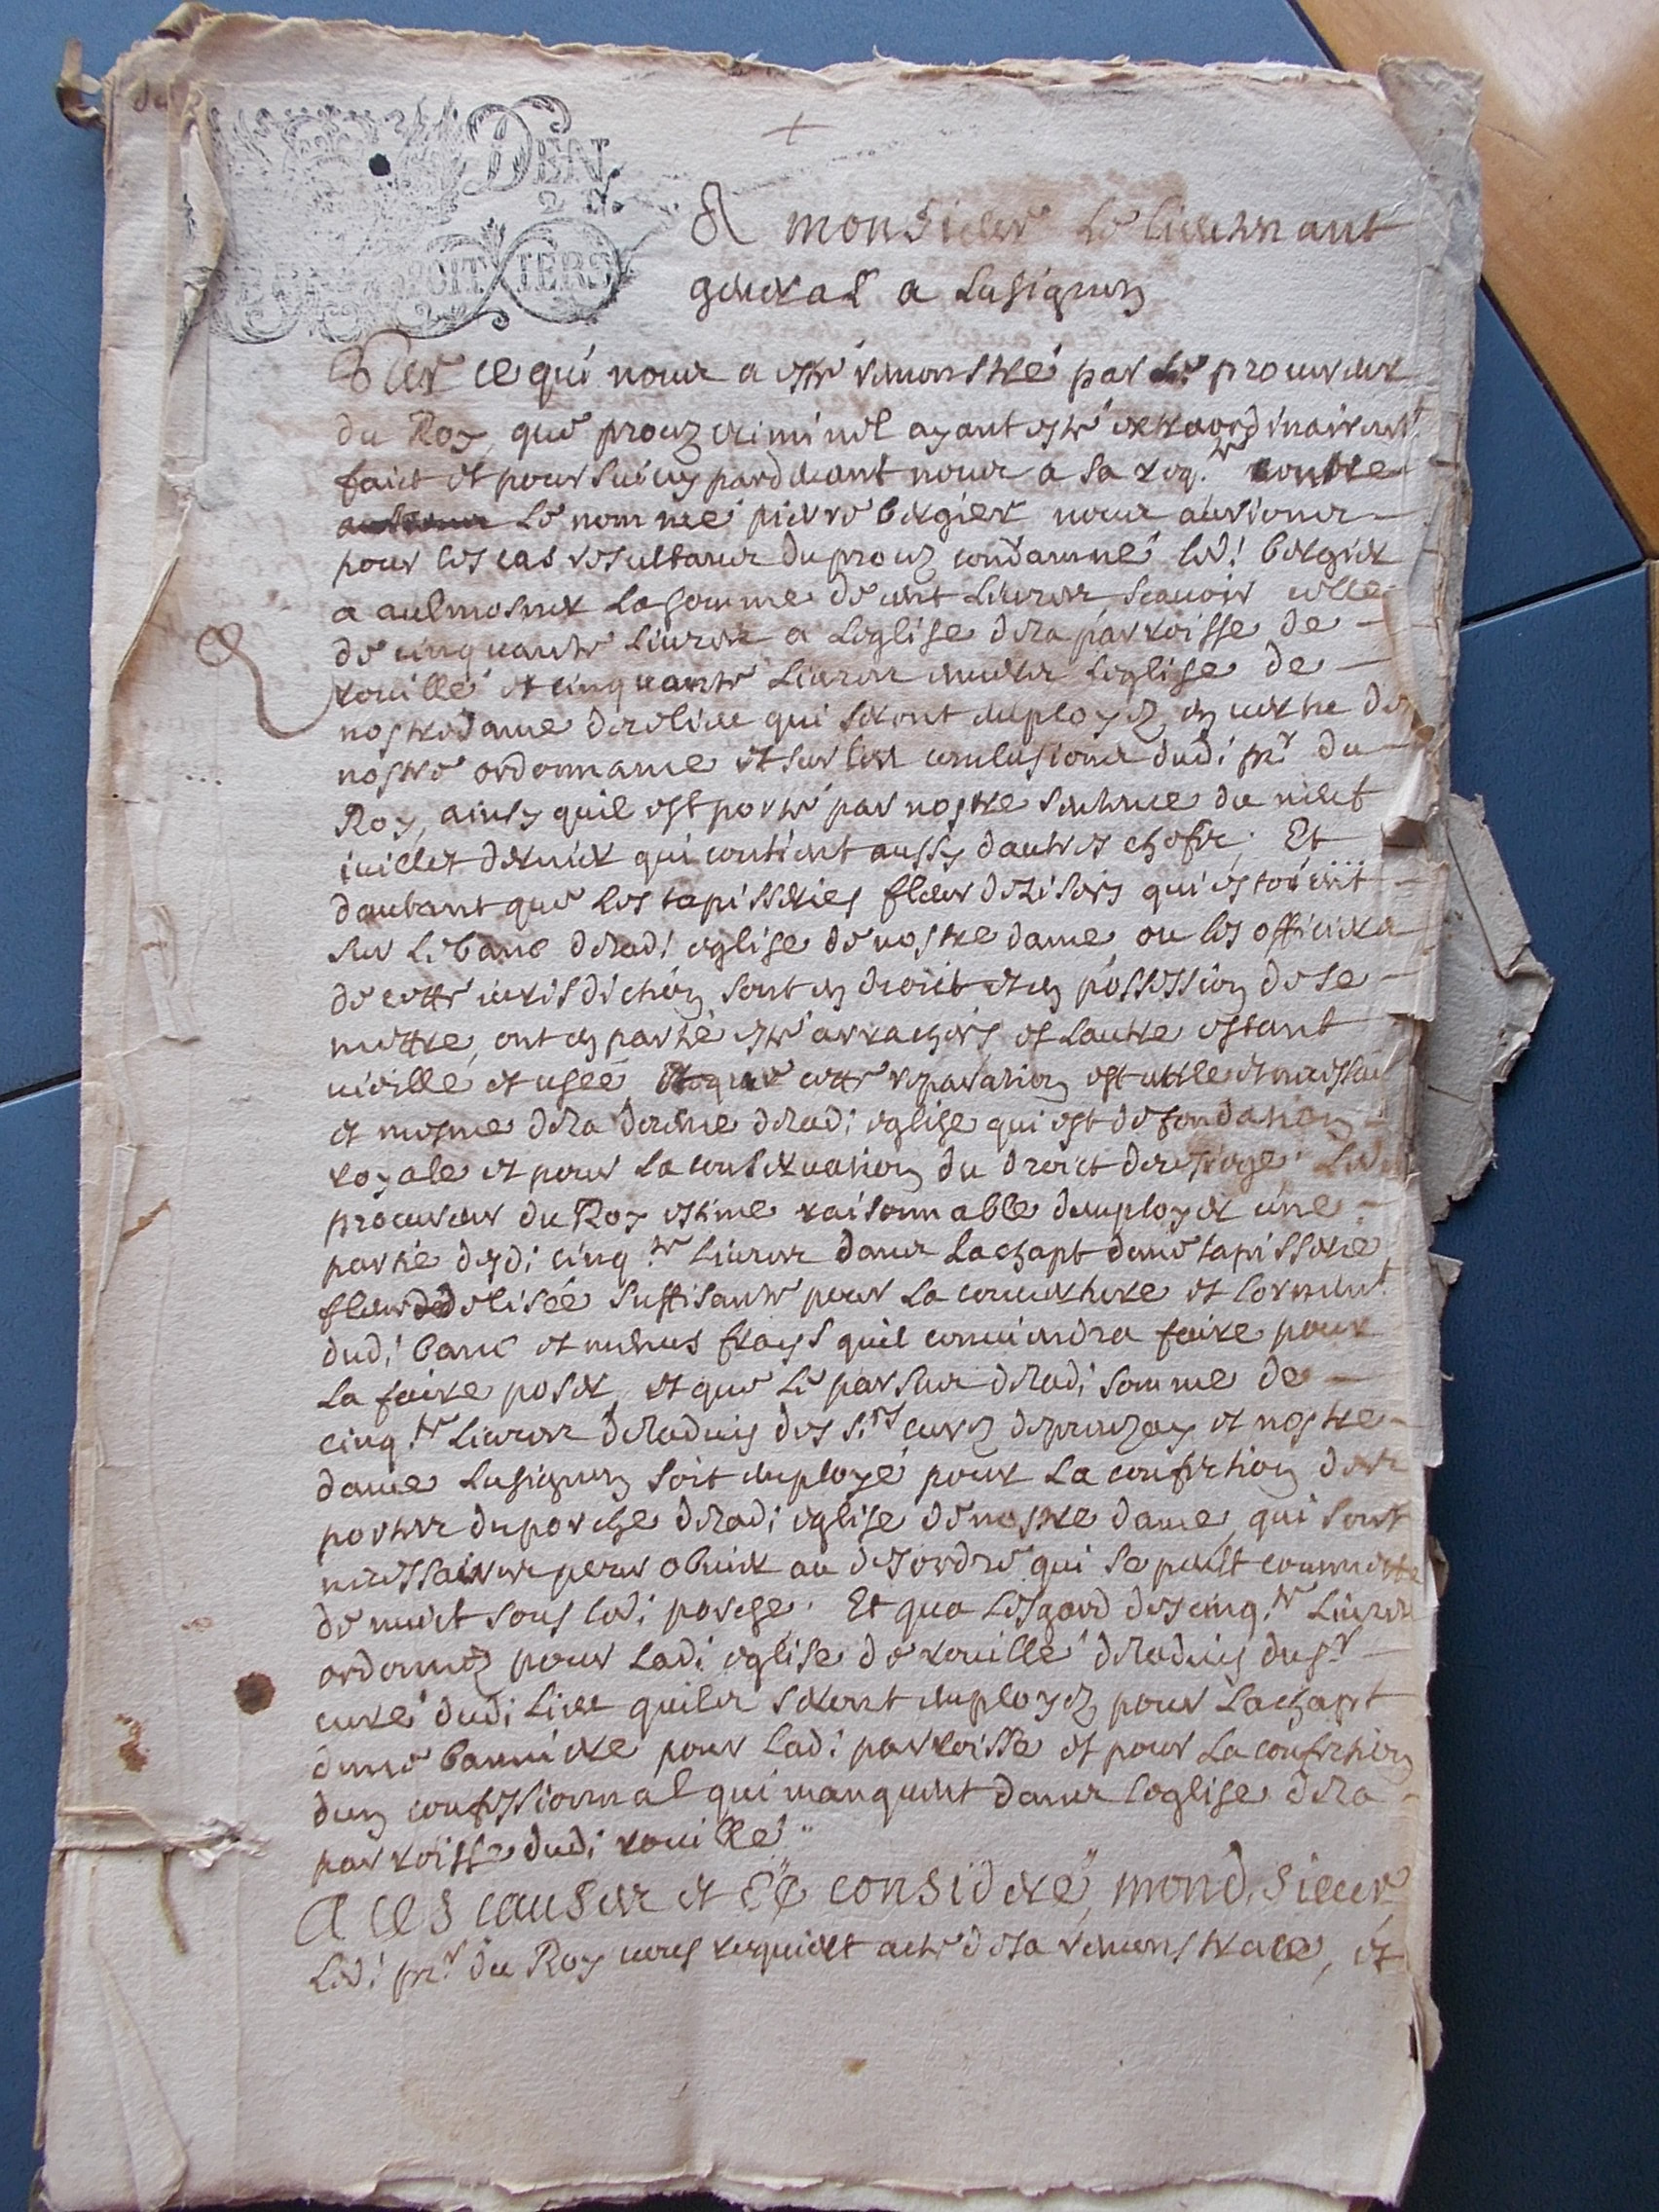 DEN
2 S.
GEN POITIERS
A monsieur le lieutenant
general a Lusignen
Sur ce qui nous a esté remonstré par le procureur
du Roy, que procez criminel ayant esté extraordinairemt
faict et poursuivy pardevant nous a sa reqte contre
le nommé pierre bergier nous aurions
pour les cas resultans du procez condamné led! bergier
a aulmosner la somme de cent livres, scavoir celle
de cinquante livres a leglise de la parroisse de
rouillé et cinquante livres envers leglise de
nostre dame de ce lieu qui seront employez en vertu de
nostre ordonnance et sur les conclusions dudi pr du
Roy, ainsy quil est porté par nostre sentence du
iuillet dernier qui contient aussy dautres choses; Et
dautant que les tapisseries fleurdelisees qui estoient
sur le banc de ladi eglise de nostre dame, ou les officiers
de cette iurisdiction sont en droict et en possession de se
mettre, ont en partie esté arrachees et lautre estant
vieille et usée cette reparation est utile et
et mesme de la de ladi eglise qui est de fondation
royale et pour la conservation du droict de Led
procureur du Roy estime raisonnable demployer une
partie desdi cinqte livres dans lachapt dune tapisserie
fleurdelisée suffisante pour la couverture et lornemt
dudi banc et menus frays quil conviendra faire pour
la faire poser, et que le parsus de ladi somme de
cinqte livres de ladvis des Srs curez de et nostre
dame Lusignen soit employé pour la confection des
portes du porche de ladi eglise de nostre dame, qui sont
necessaires pour obvier au desordre qui se peult commettre
de nuict sous ledi porche. Et qua lesgard des cinqte livres
ordonnez pour ladi eglise de rouillé de ladvis du sr
curé dudi lieu quiles seront employez pour lachapt
dune banniere pour ladi parroisse et pour la confection
dun confessionnal qui manquent dans leglise de la
parroisse dudi rouillé
A ces causes et ce consideré, mond. sieur
Ledi pr du Roy vous requiert acte de sa remonstrance, et